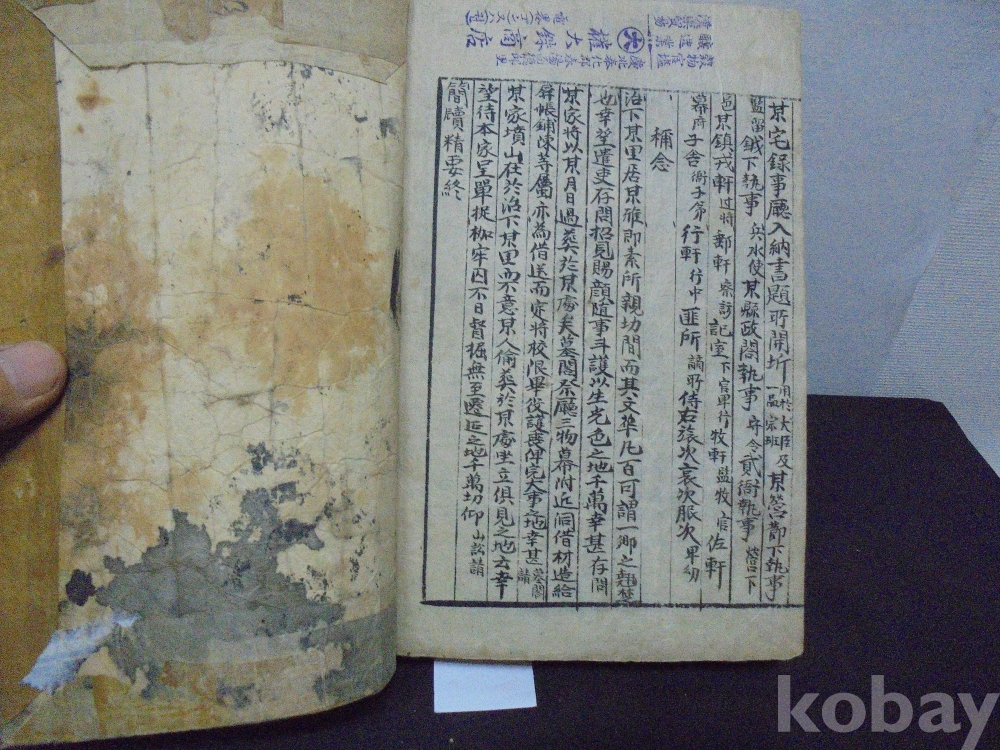 某宅錄事廳入納書題所開坼 用於大臣及一品宗班 某營節下執事
監留 鉞下執事 兵水使 某縣政閤執事 守令 貳衙執事 營下
邑 某鎭戎軒 边將 郵軒 察訪 記室 下官單行 牧軒 監牧官 佐軒
幕府 子舍 衙子弟 行軒 行中 匪所 謫所 侍右 旅次 哀次 服次 卑幼
稱念
治下某里居某雅即素所親切間而其文華凡百可謂一鄉之翹楚
也幸望遣吏存問招見賜顔隨事斗護以生光色之地千萬幸甚 存問
某家將以某月日過葬於某處矣墓閣祭廳三物幕附近洞借材造給
屛帳鋪陳等屬亦為借送而定將校限畢役護喪俾完大事之地幸甚 墓閣請
某家墳山在於治下某里而不意某人偷葬於某處坐立俱見之地云幸
望待本家呈單捉枷牢囚不日督掘無至遷延之地千萬切仰 山訟請
簡牘精要終
穀物
釀造業
慶北奉化
權大錄商店
大
kobay